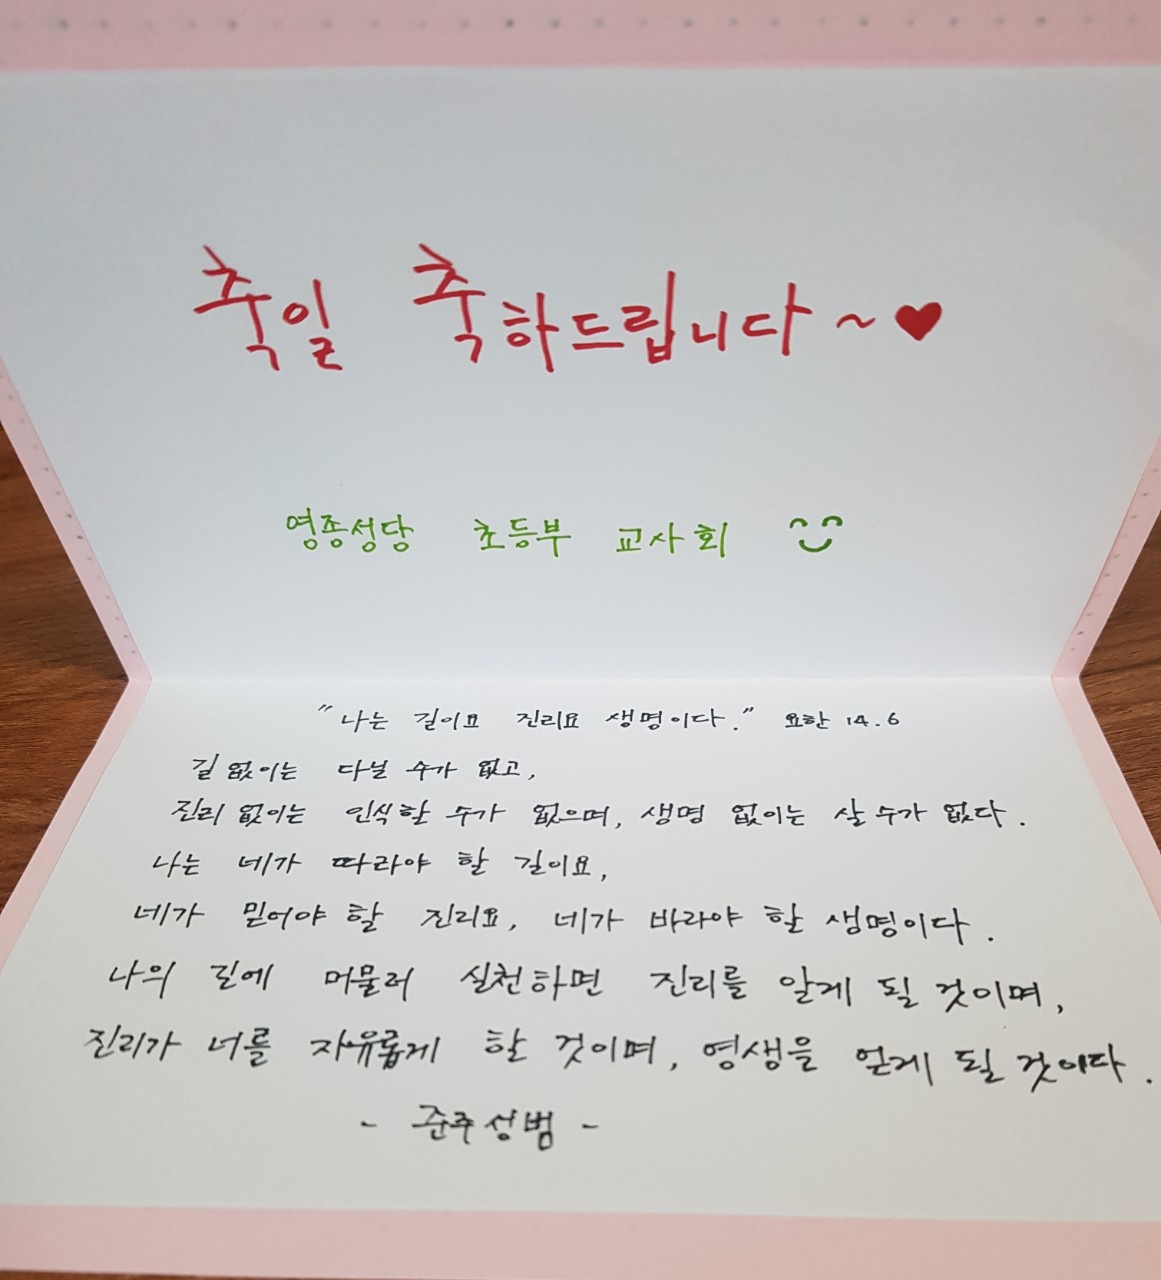 축일 축하드립니다~♥
영종성당 초등부 교사회
"나는 길이요 진리요 생명이다." 요한 14.6
길 없이는 다닐 수가 없고,
진리 없이는 인식할 수가 없으며, 생명 없이는 살 수가 없다.
나는 네가 따라야 할 길이요,
네가 믿어야 할 진리요, 네가 바라야 할 생명이다.
나의 길에 머물러 실천하면 진리를 알게 될 것이며,
진리가 너를 자유롭게 할 것이며, 영생을 얻게 될 것이다.
- 준주성범 -